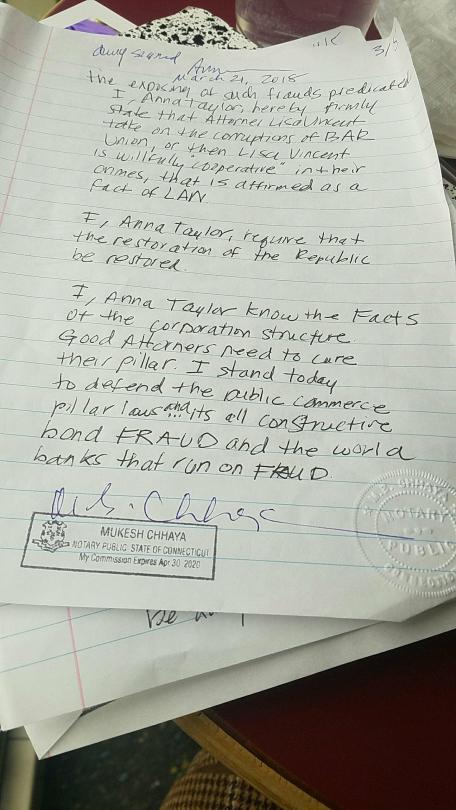 3/5
duly signed
March 21, 2018
the exposing of such frauds predicated
I, Anna Taylor, hereby firmly
state that Attorner Lisa Vincent
take on the corruptions of BAR
Union, or then Lisa Vincent
is willfully "cooperative" in their
crimes, that is affirmed as a
fact of LAW.
I, Anna Taylor, require that
the restoration of the Republic
be restored.
I, Anna Taylor know the Facts
of the corporation structure.
Good Attorners need to cure
their pillar. I stand today
to defend the public commerce
pillar laws and its all constructive
bond FRAUD and the world
banks that run on FRAUD.
MUKESH CHHAYA
NOTARY PUBLIC STATE OF CONNECTICUT
My Commission Expires Apr 30, 2020
CHHAYA
NOTARY
PUBLIC